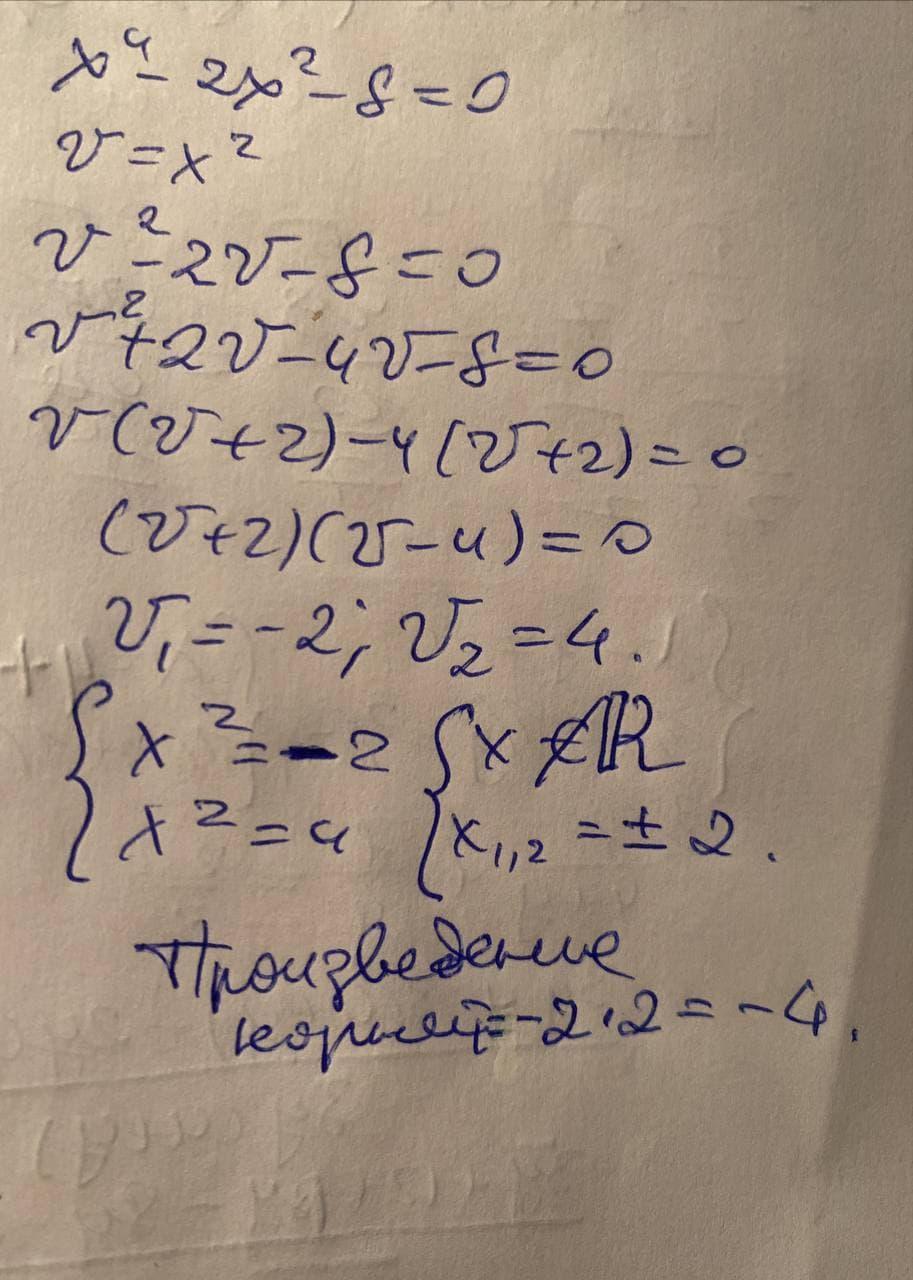 x⁴ - 2x² - 8 = 0
v = x²
v² - 2v - 8 = 0
v² + 2v - 4v - 8 = 0
v(v+2) - 4(v+2) = 0
(v+2)(v-4) = 0
v₁ = -2; v₂ = 4.
{ x² = -2 { x ∉ ℝ
x² = 4 x₁,₂ = ± 2.
Произведение
корней = -2·2 = -4.